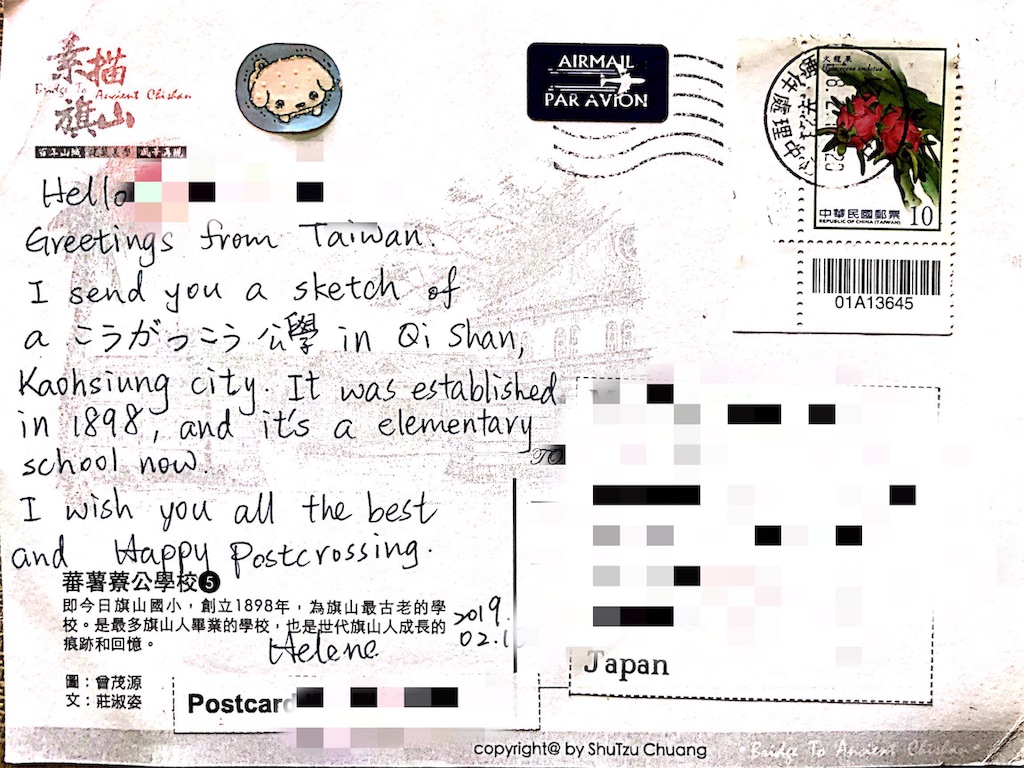 素描
Bridge To Ancient Chishan
旗山
AIRMAIL
PAR AVION
火龍果
中華民國郵票
REPUBLIC OF CHINA (TAIWAN)
10
01A13645
Hello
Greetings from Taiwan.
I send you a sketch of
a こうがっこう 公學 in Qi Shan,
Kaohsiung city. It was established
in 1898, and it's a elementary
school now.
I wish you all the best
and Happy Postcrossing.
蕃薯藔公學校5
即今日旗山國小，創立1898年，為旗山最古老的學
校。是最多旗山人畢業的學校，也是世代旗山人成長的
痕跡和回憶。
Helene
2019.
02.1
圖：曾茂源
文：莊淑姿
TO
Japan
Postcard
copyright@ by ShuTzu Chuang
Bridge To Ancient Chishan